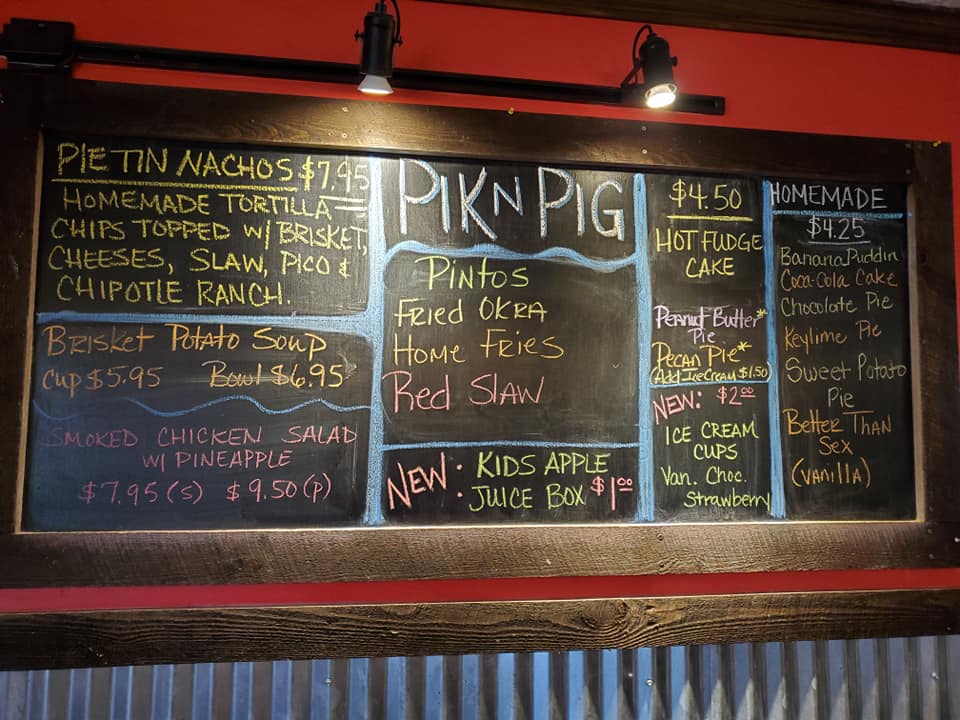 PIE TIN NACHOS $7.95
HOMEMADE TORTILLA
CHIPS TOPPED W/ BRISKET,
CHEESES, SLAW, PICO &
CHIPOTLE RANCH.
BRISKET POTATO SOUP
CUP $5.95 BOWL $6.95
SMOKED CHICKEN SALAD
W/ PINEAPPLE
$7.95 (S) $9.50 (P)
PIKN PIG
PINTOS
FRIED OKRA
HOME FRIES
Red SLAW
NEW: KIDS APPLE
JUICE BOX $1.00
$4.50
HOT FUDGE
CAKE
Peanut Butter*
Pie
PECAN Pie*
(Add Ice Cream $1.50)
NEW: $2.00
ICE CREAM
CUPS
Van. Choc.
Strawberry
HOMEMADE
$4.25
Banana Puddin
Coca-Cola Cake
Chocolate Pie
Keylime Pie
Sweet Potato
Pie
Better Than
Sex
(VANILLA)